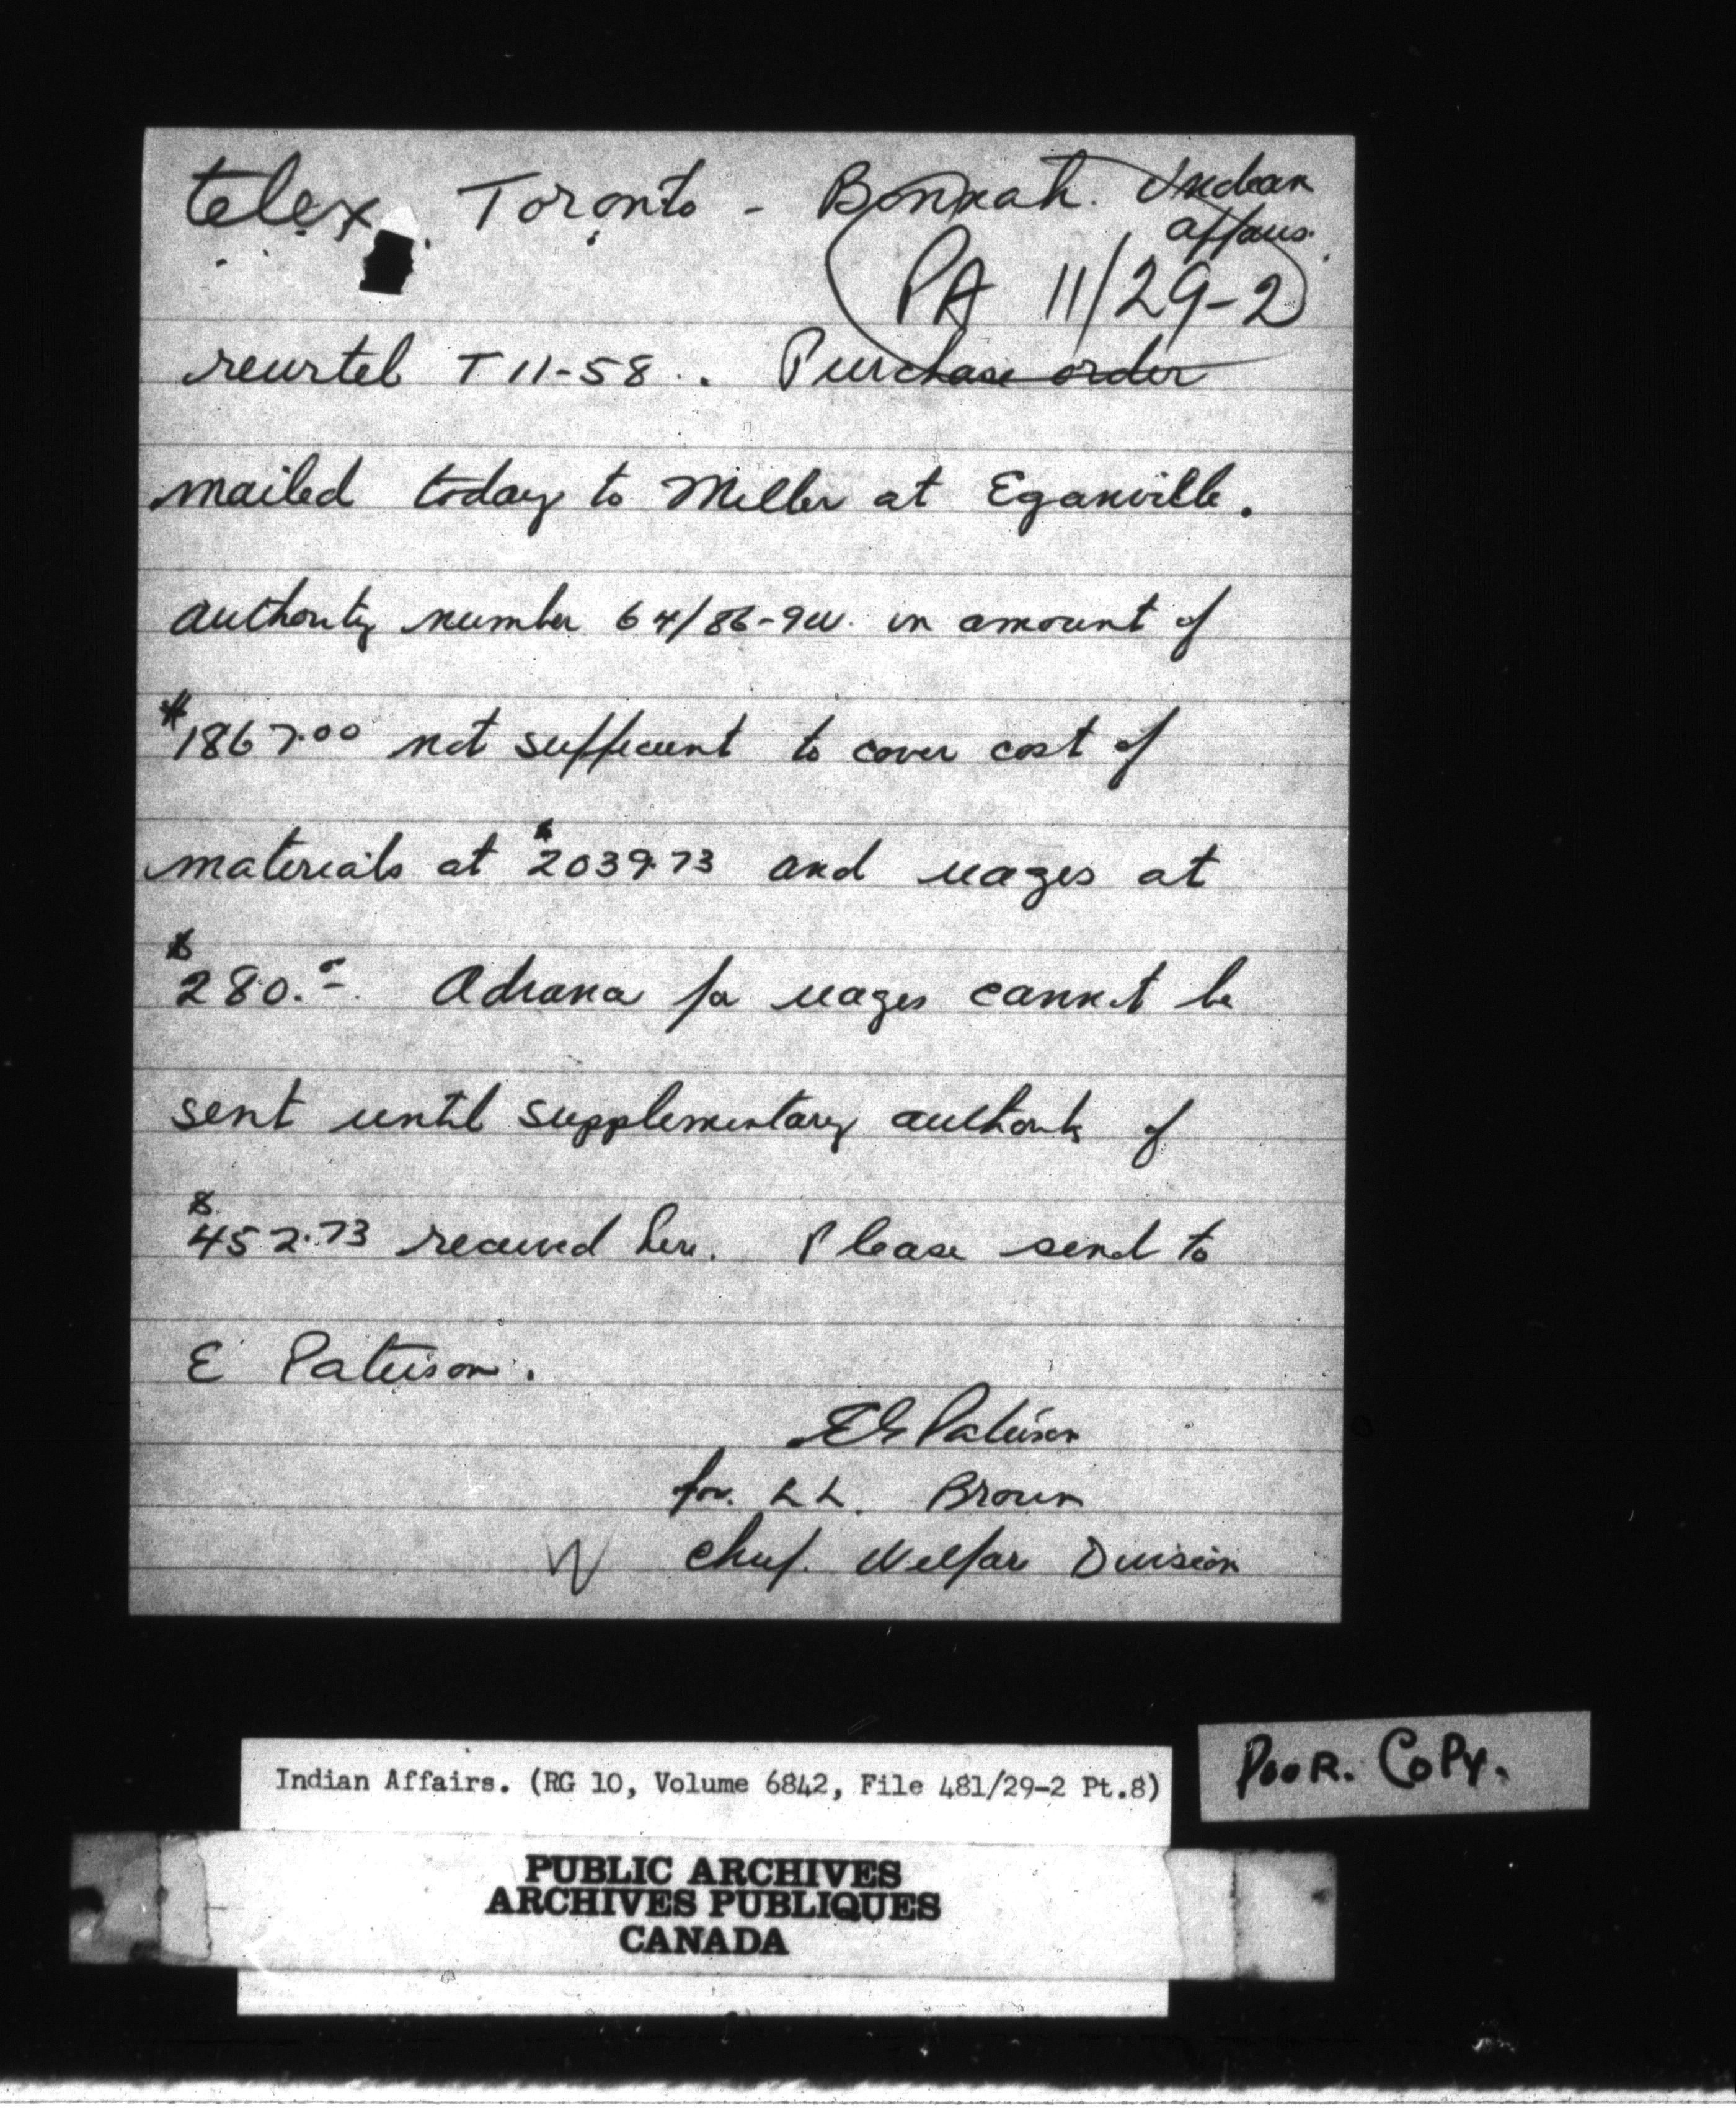 telex. Toronto - Bonnah. Indian
affairs.
PA 11/29-2
reurtel T 11-58. Purchase order
mailed today to Miller at Eganville.
authority number 64/86-9W. in amount of
$1867.00 not sufficient to cover cost of
materials at $2039.73 and wages at
$280.00. Advance for wages cannot be
sent until supplementary authority of
$452.73 received here. Please send to
E Paterson.
EG Paterson
for. LL. Brown
chief. Welfare Division
Indian Affairs. (RG 10, Volume 6842, File 481/29-2 Pt.8)
POOR. COPY.
PUBLIC ARCHIVES
ARCHIVES PUBLIQUES
CANADA